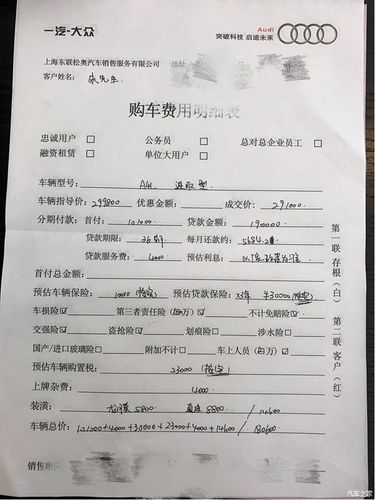 一汽-大众 Audi
突破科技 启迪未来
上海东联松奥汽车销售服务有限公司 地址:
客户姓名:
购车费用明细表
忠诚用户 □ 公务员 □ 总对总企业员工 □
融资租赁 □ 单位大用户 □
车辆型号: A4L 进取型
车辆指导价: 299800 优惠金额: 成交价: 291000
分期付款: 首付: 121000 贷款金额: 190000
贷款期限: 36期 每月还款约: 5684.2
贷款服务费: 4000 预估利息:
首付总金额:
预估车辆保险: 10000 预估贷款保险: ×3年 ¥30000
车损险☑ 第三者责任险 不计免赔险☑
交强险☑ 盗抢险☑ 划痕险□ 涉水险□
国产/进口玻璃险□ 附加不计□ 车上人员
预估车辆购置税: 23000
上牌杂费: 4000
装潢: 5800 8800 / 14600
车辆总价: 121000+4000+30000+23000+4000+14600 /
销售顾
第一联存根(白) 第二联客户(红)
汽车之家